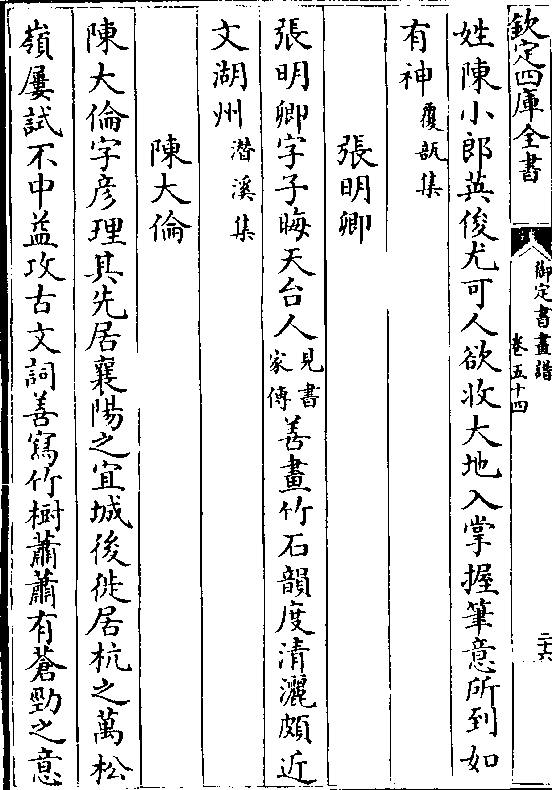 欽定四庫全書
御定書畫譜
卷五十四
二十六
姓陳小郎英俊尤可人欲收大地入掌握筆意所到如
有神覆瓿集
張明卿
張明卿字子晦天台人見書家傳善畫竹石韻度清灑頗近
文湖州潛溪集
陳大倫
陳大倫字彦理其先居襄陽之宜城後徙居杭之萬松
嶺屢試不中益攻古文詞善寫竹樹蕭蕭有蒼勁之意